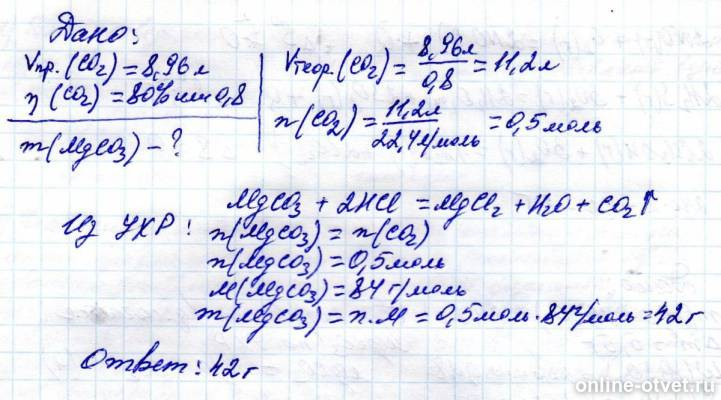 Дано:
Vпр.(CO₂) = 8,96 л
η (CO₂) = 80% или 0,8
m(MgCO₃) - ?
Vтеор.(CO₂) = 8,96 л / 0,8 = 11,2 л
n(CO₂) = 11,2 л / 22,4 л/моль = 0,5 моль
MgCO₃ + 2HCl = MgCl₂ + H₂O + CO₂↑
Из УХР: n(MgCO₃) = n(CO₂)
n(MgCO₃) = 0,5 моль
M(MgCO₃) = 84 г/моль
m(MgCO₃) = n·M = 0,5 моль·84 г/моль = 42 г
Ответ: 42 г
online-otvet.ru